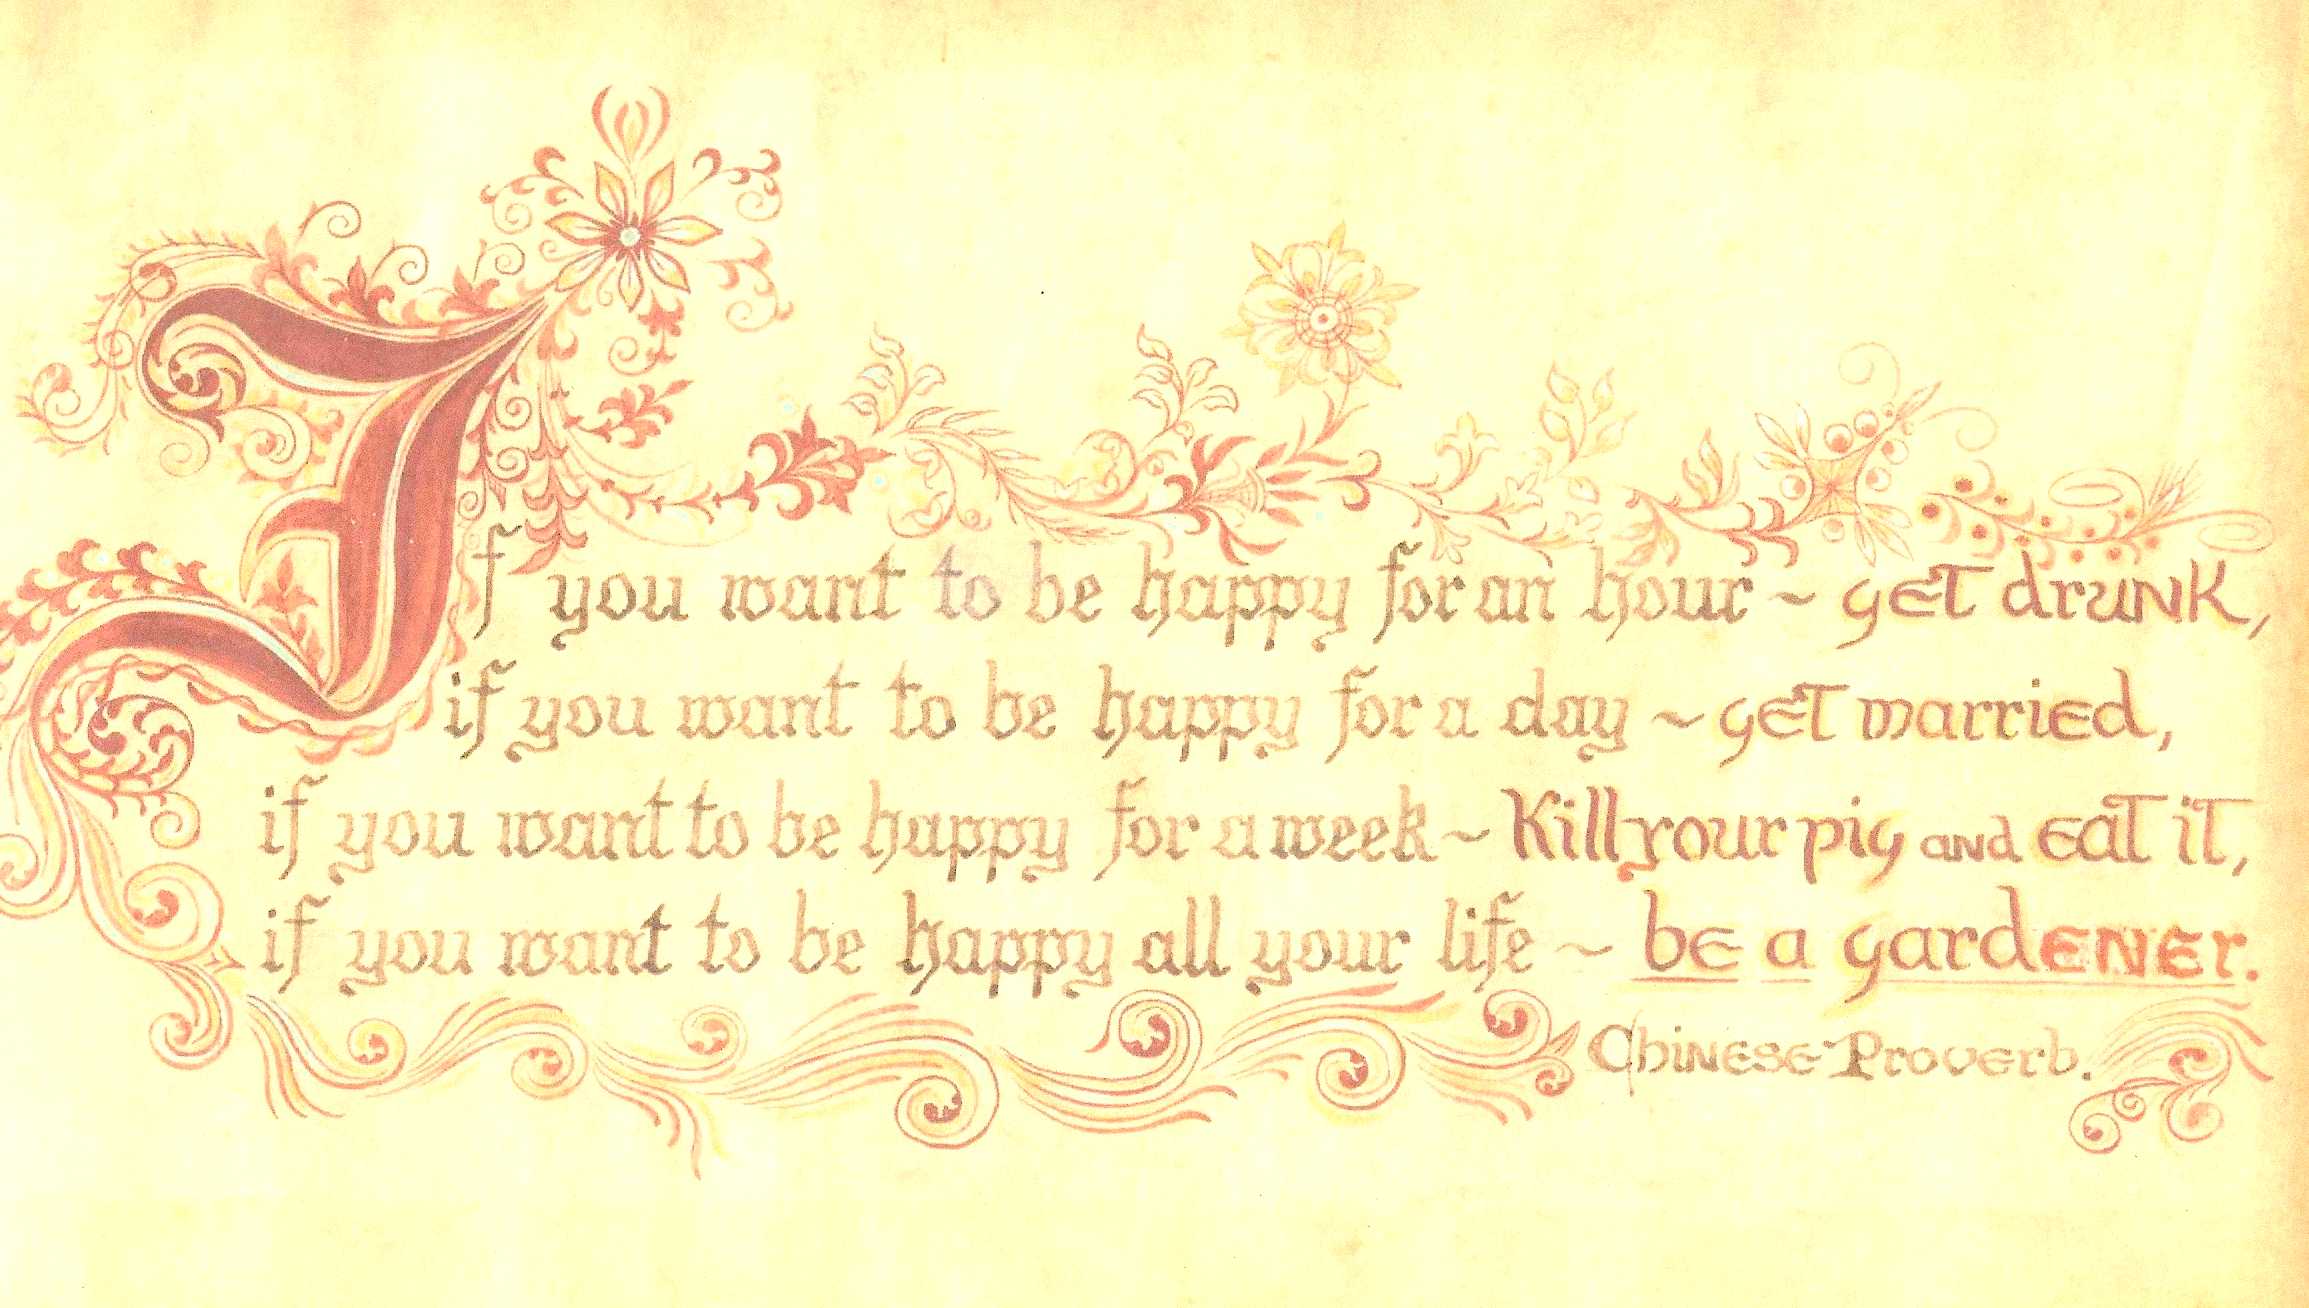 If you want to be happy for an hour ~ get drunk,
if you want to be happy for a day ~ get married,
if you want to be happy for a week ~ Kill your pig and eat it,
if you want to be happy all your life ~ be a gardener.
Chinese Proverb.